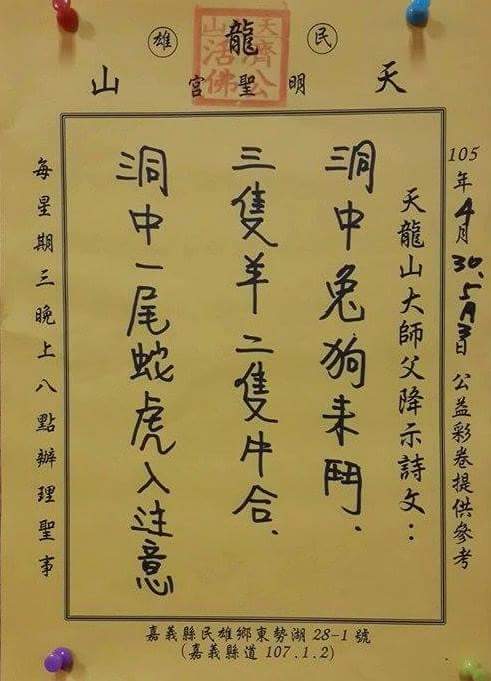 民雄
天龍山
明聖宮
天山濟公活佛
105年4月30.5月3日 公益彩卷提供參考
天龍山大師父降示詩文：
洞中兔狗来鬥.
三隻羊二隻牛合.
洞中一尾蛇虎入注意
每星期三晚上八點辦理聖事
嘉義縣民雄鄉東勢湖28-1號
(嘉義縣道107.1.2)